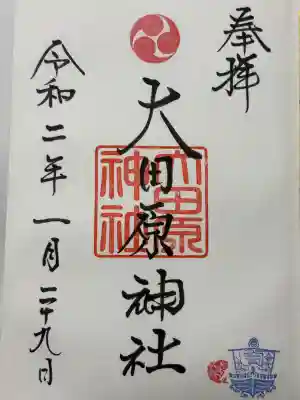 奉拝
大田原神社
大田原
神社
令和二年一月二十九日